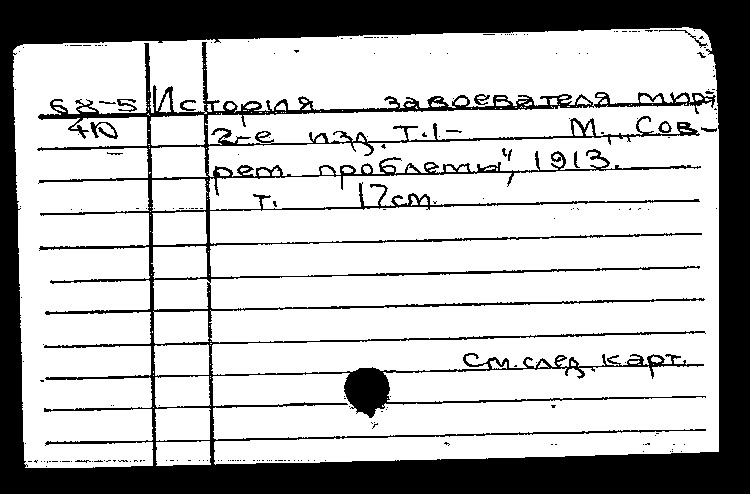 68-5 История завоевателя мира
410 2-е изд. Т.1- М., „Сов-
рем. проблемы", 1913.
т. 17см.
См. след. карт.